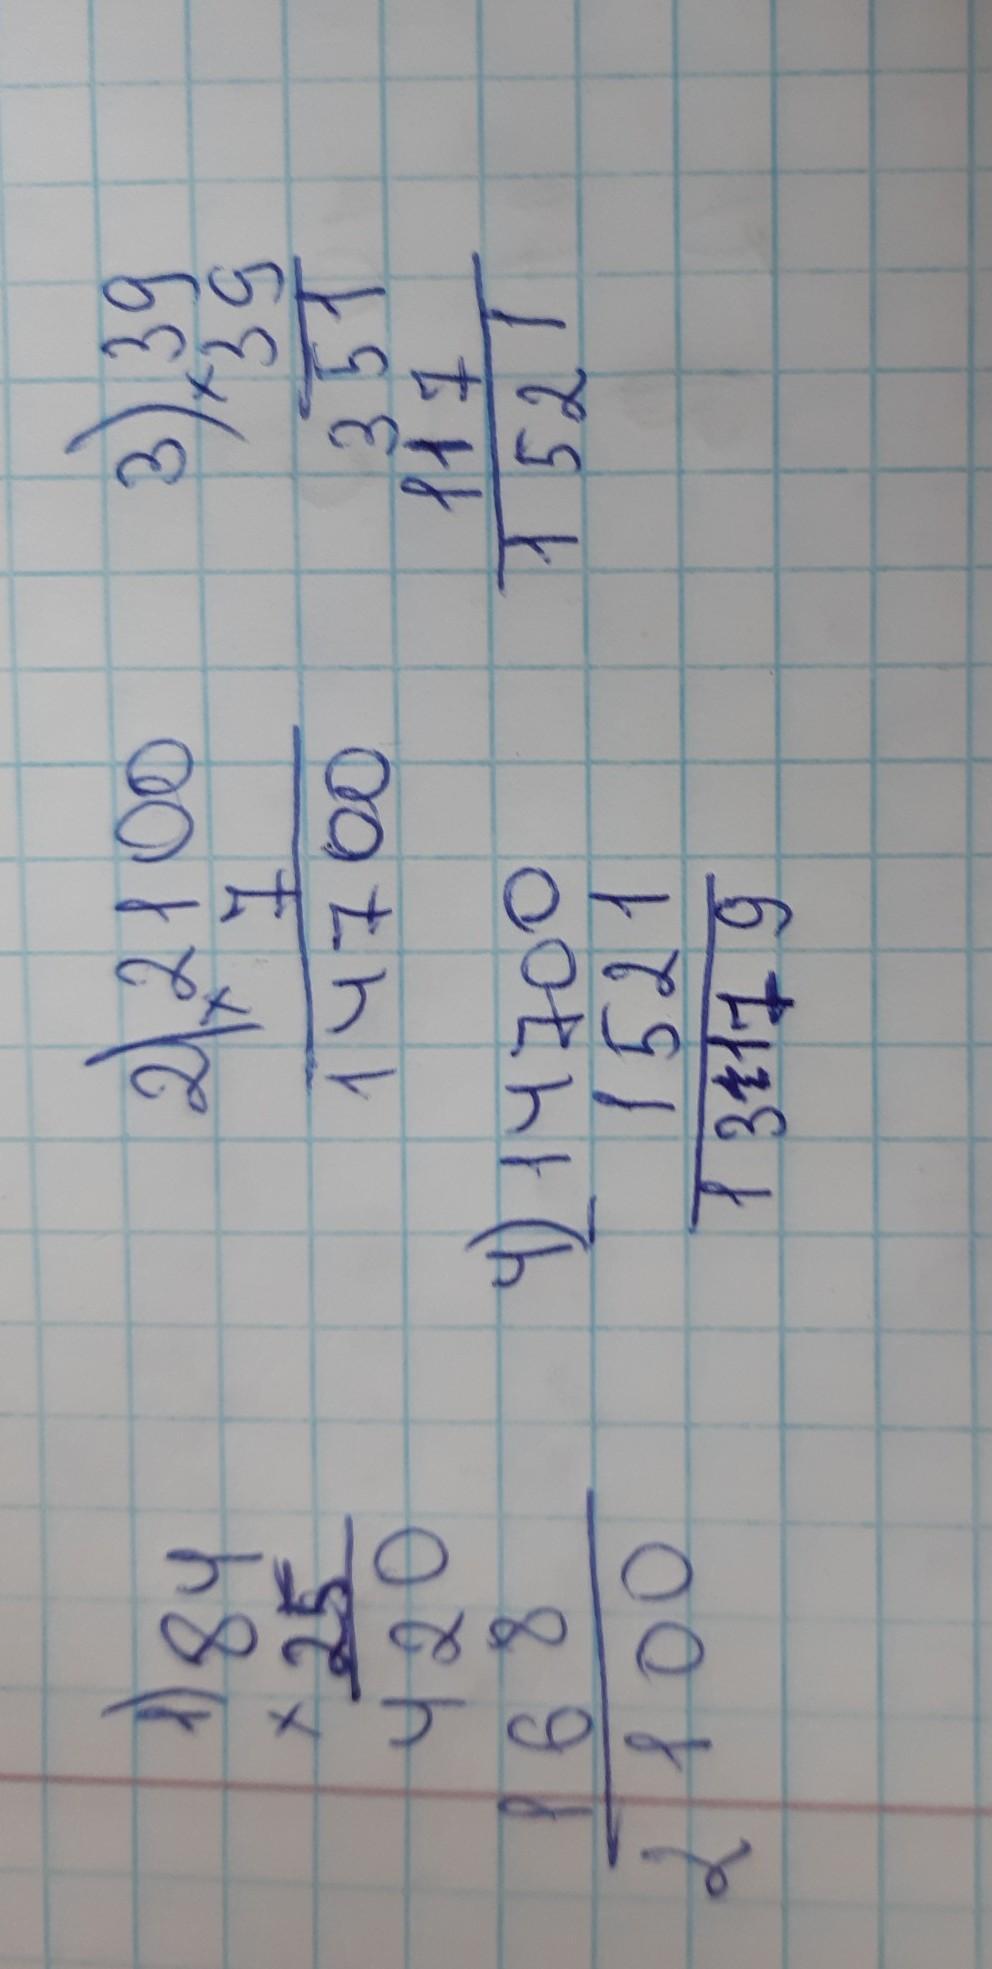 1) 84
× 25
420
168
2100
2) 2100
× 7
14700
3) 39
× 39
351
117
1521
4) 14700
- 1521
13179